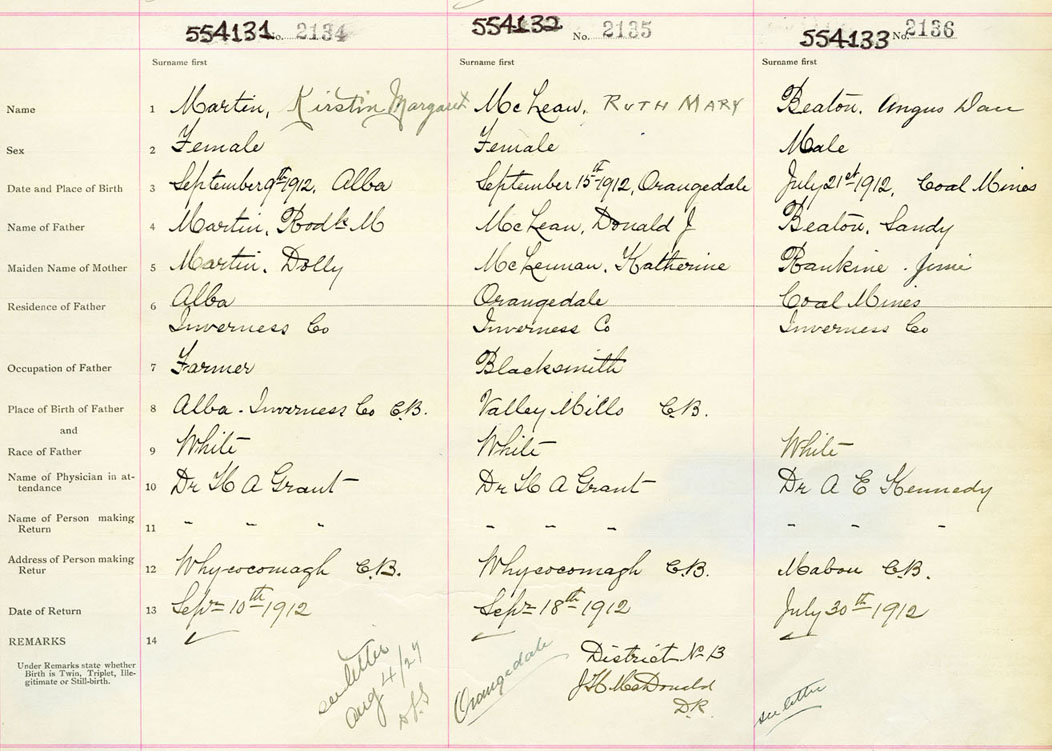 554131 No. 2134 554132 No. 2135 554133 No. 2136
Surname first Surname first Surname first
Name 1 Martin, Kirstin Margaret McLean, RUTH MARY Beaton, Angus Dan
Sex 2 Female Female Male
Date and Place of Birth 3 September 9th 1912, Alba September 15th 1912, Orangedale July 21st 1912, Coal Mines
Name of Father 4 Martin, Rodk M McLean, Donald J Beaton, Sandy
Maiden Name of Mother 5 Martin, Dolly McLennan, Katherine Rankine
Residence of Father 6 Alba Orangedale Coal Mines
Inverness Co Inverness Co Inverness Co
Occupation of Father 7 Farmer Blacksmith
Place of Birth of Father 8 Alba - Inverness Co C.B. Valley Mills C.B.
and
Race of Father 9 White White White
Name of Physician in at-
tendance 10 Dr H A Grant Dr H A Grant Dr A E Kennedy
Name of Person making
Return 11 " " " " " " " " "
Address of Person making
Retur 12 Whycocomagh C.B. Whycocomagh C.B. Mabou C.B.
Date of Return 13 Sept 10th 1912 Sept 18th 1912 July 30th 1912
REMARKS 14
Under Remarks state whether
Birth is Twin, Triplet, Ille-
gitimate or Still-birth.
see letter
Aug 4/27
Orangedale
District No 13
J H McDonald
D.R.
see letter